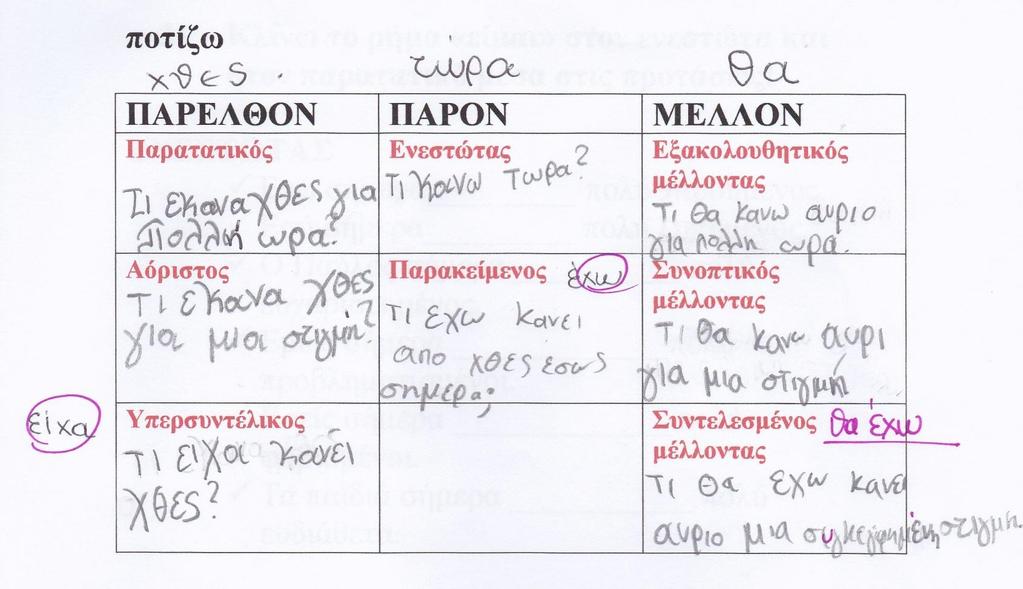 ποτίζω
χθες τωρα θα
ΠΑΡΕΛΘΟΝ ΠΑΡΟΝ ΜΕΛΛΟΝ
Παρατατικός
Τι εκανα χθες για
πολλή ωρα?
Ενεστώτας
Τι κανω τωρα?
Εξακολουθητικός
μέλλοντας
Τι θα κανω αυριο
για πολλη ωρα.
Αόριστος
Τι εκανα χθες
για μια στιγμή?
Παρακείμενος έχω
Τι εχω κανει
απο χθες εσως
σημερα;
Συνοπτικός
μέλλοντας
Τι θα κανω αυρι
για μια στιγμή
είχα Υπερσυντέλικος
Τι ειχα κανει
χθες?
Συντελεσμένος θα έχω
μέλλοντας
Τι θα εχω κανει
αυριο μια συγκεκριμένη στιγμη.